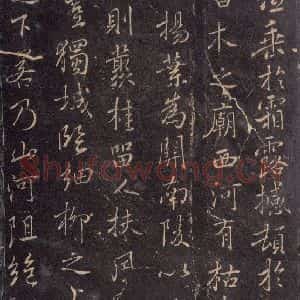 垂於霜露撼頓於
白木之廟西河有枯
楊葉為關南陵以
則叢桂留人扶風
豈獨城臨細柳之
下若乃山河阻絕
Shufawang.Cn